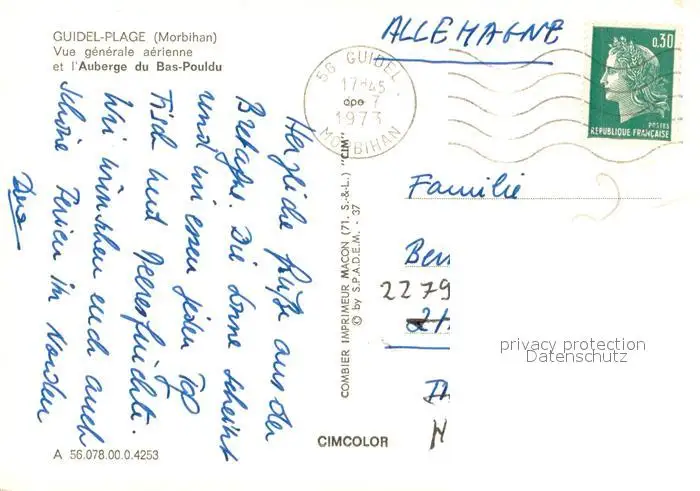 GUIDEL-PLAGE (Morbihan)
Vue générale aérienne
et l'Auberge du Bas-Pouldu
Herzliche Grüße aus der
Bretagne. Die Sonne scheint
und wir essen jeden Tag
Fisch und Meeresfrüchte.
Wir wünschen euch auch
schöne Ferien im Norden
A 56.078.00.0.4253
COMBIER IMPRIMEUR MACON (71. S.-&-L.) "CIM"
© by S.P.A.D.E.M. - 37
CIMCOLOR
ALLEMAGNE
56 GUIDEL
17H45
7
1973
MORBIHAN
0,30
POSTES
REPUBLIQUE FRANÇAISE
Familie
Ben
2279
privacy protection
Datenschutz